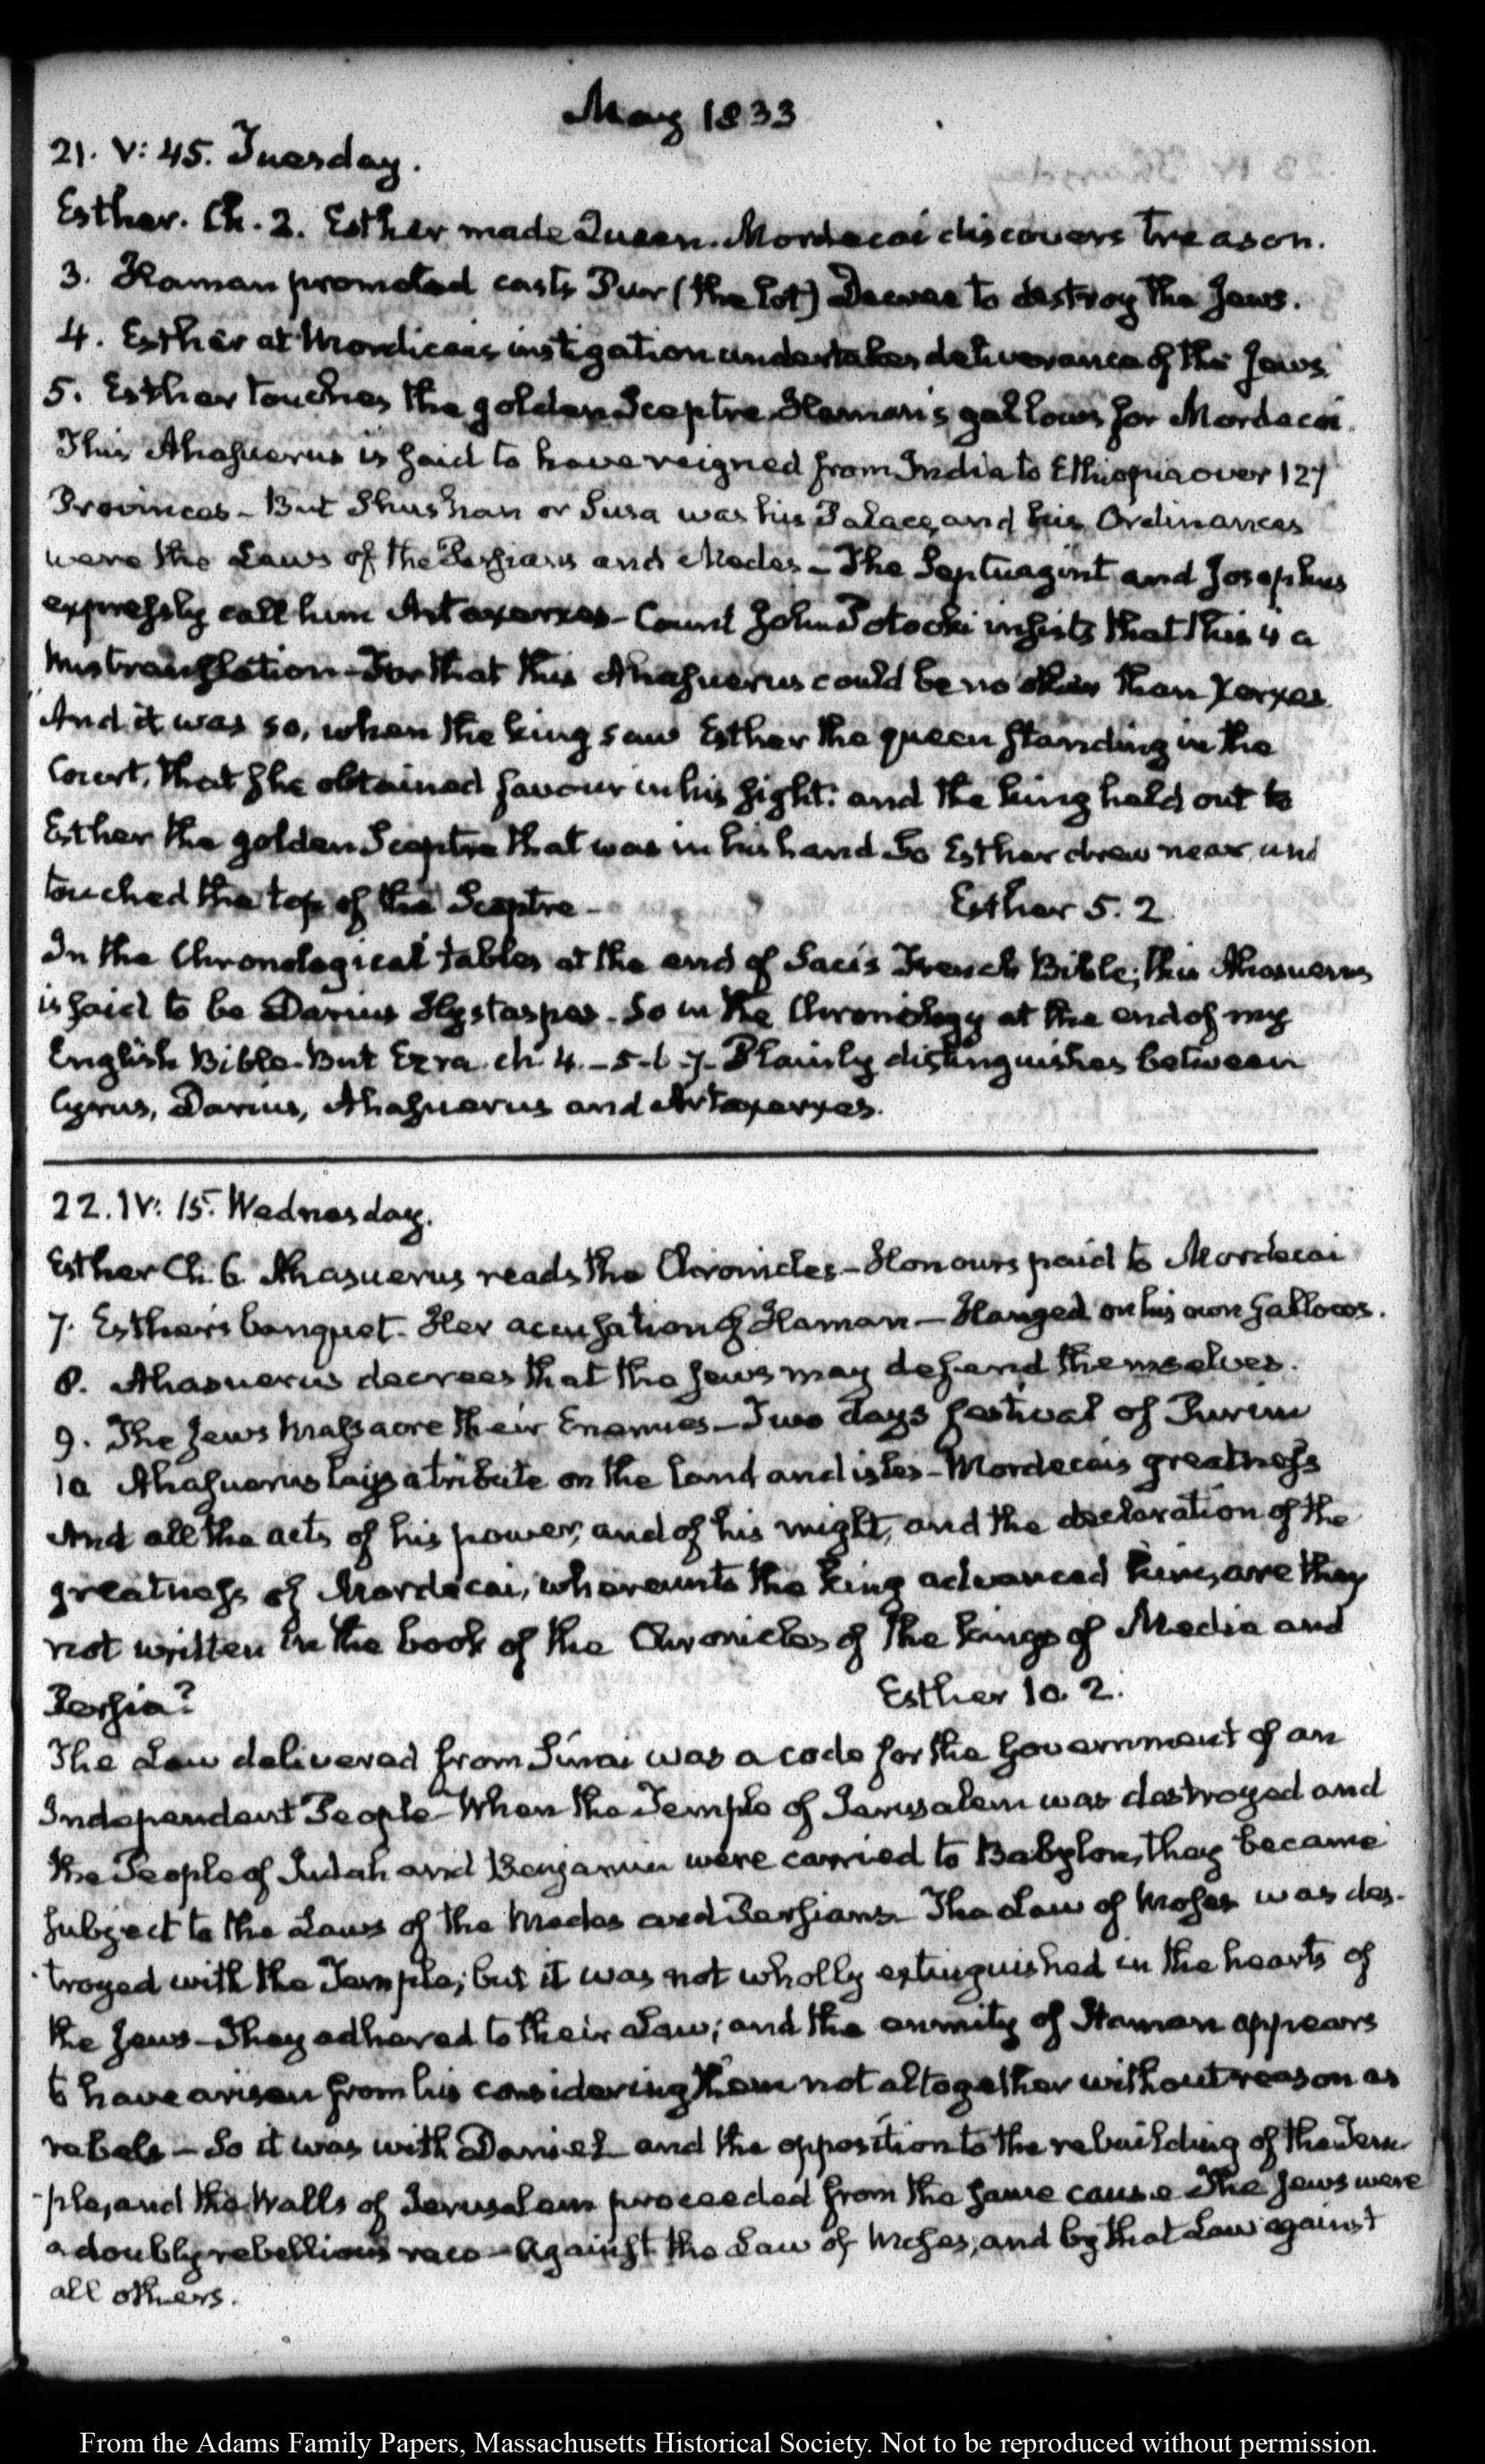 May 1833
21. V: 45. Tuesday.
Esther. Ch. 2. Esther made Queen. Mordecai discovers treason.
3. Haman promoted casts Pur (the lot) Decree to destroy the Jews.
4. Esther at Mordicais instigation undertakes deliverance of the Jews.
5. Esther touches the golden Sceptre. Haman's gallows for Mordecai.
This Ahasuerus is said to have reigned from India to Ethiopia over 127
Provinces - But Shushan or Susa was his Palace, and his Ordinances
were the Laws of the Persians and Medes - The Septuagint and Josephus
expressly call him Artaxerxes - Count John Potocki insists that this is a
mistranslation - For that this Ahasuerus could be no other than Xerxes.
And it was so, when the king saw Esther the queen standing in the
Court, that she obtained favour in his sight: and the king held out to
Esther the golden Sceptre that was in his hand So Esther drew near, and
touched the top of the Sceptre - Esther 5. 2.
In the Chronological tables at the end of Saci's French Bible, this Ahasuerus
is said to be Darius Hystaspes. So in the Chronology at the end of my
English Bible. But Ezra. ch. 4. - 5-6-7- Plainly distinguishes between
Cyrus, Darius, Ahasuerus and Artaxerxes.
22. IV: 15. Wednesday.
Esther Ch. 6. Ahasuerus reads the Chronicles - Honours paid to Mordecai
7. Esther's banquet. Her accusation of Haman - Hanged on his own Gallows.
8. Ahasuerus decrees that the Jews may defend themselves.
9. The Jews massacre their Enemies - Two days festival of Purim
10 Ahasuerus lays a tribute on the land and isles - Mordecais greatness
And all the acts of his power, and of his might, and the declaration of the
greatness of Mordecai, whereunto the king advanced him, are they
not written in the book of the Chronicles of the kings of Media and
Persia? Esther 10. 2.
The Law delivered from Sinai was a code for the Government of an
Independent People - When the Temple of Jerusalem was destroyed and
the People of Judah and Benjamin were carried to Babylon, they became
subject to the Laws of the Medes and Persians - The Law of Moses was des-
troyed with the Temple; but it was not wholly extinguished in the hearts of
the Jews - They adhered to their Law; and the enmity of Haman appears
to have arisen from his considering them not altogether without reason as
rebels - So it was with Daniel and the opposition to the rebuilding of the Tem-
-ple, and the Walls of Jerusalem proceeded from the same cause The Jews were
a doubly rebellious race - Against the Law of Moses, and by that Law against
all others.
From the Adams Family Papers, Massachusetts Historical Society. Not to be reproduced without permission.